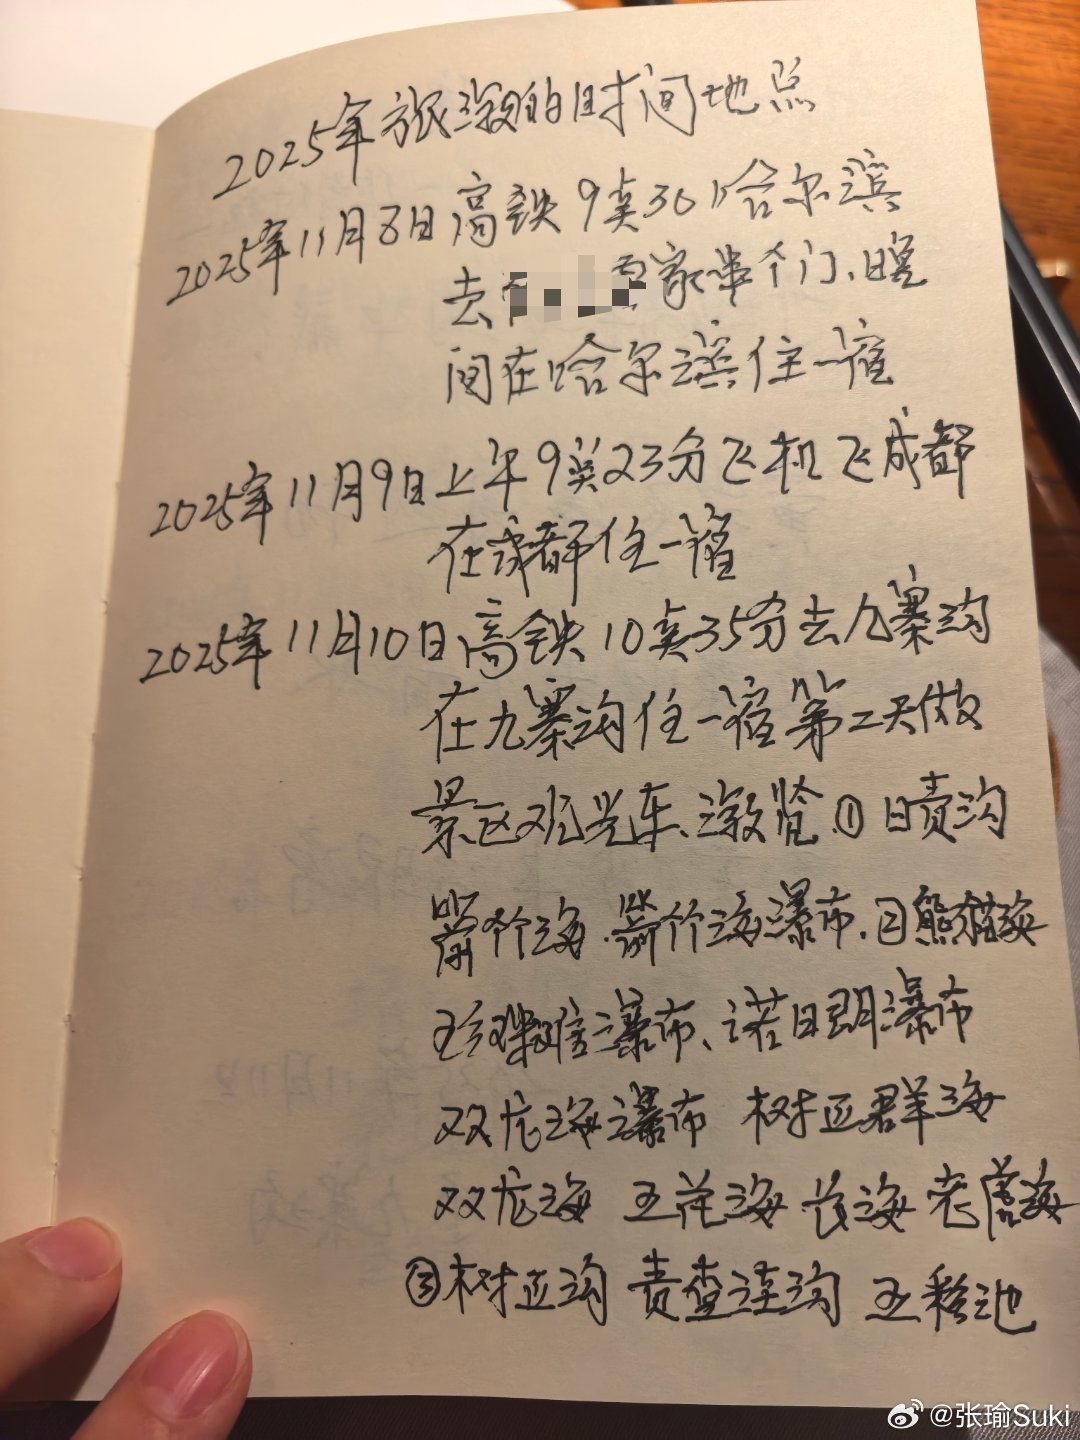 2025年旅游的时间地点
2025年11月8日高铁9点30哈尔滨
去家串个门、晚
间在哈尔滨住一宿
2025年11月9日上午9点23分飞机飞成都
在成都住一宿
2025年11月10日高铁10点35分去九寨沟
在九寨沟住一宿第二天做
景区观光车、游览.①日责沟
箭竹海.箭竹海瀑布、②熊猫海
珍珠滩瀑布、诺日朗瀑布
双龙海瀑布 树正群海
双龙海 五花海 长海 老虎海
③树正沟 责查洼沟 五彩池
@张瑜Suki